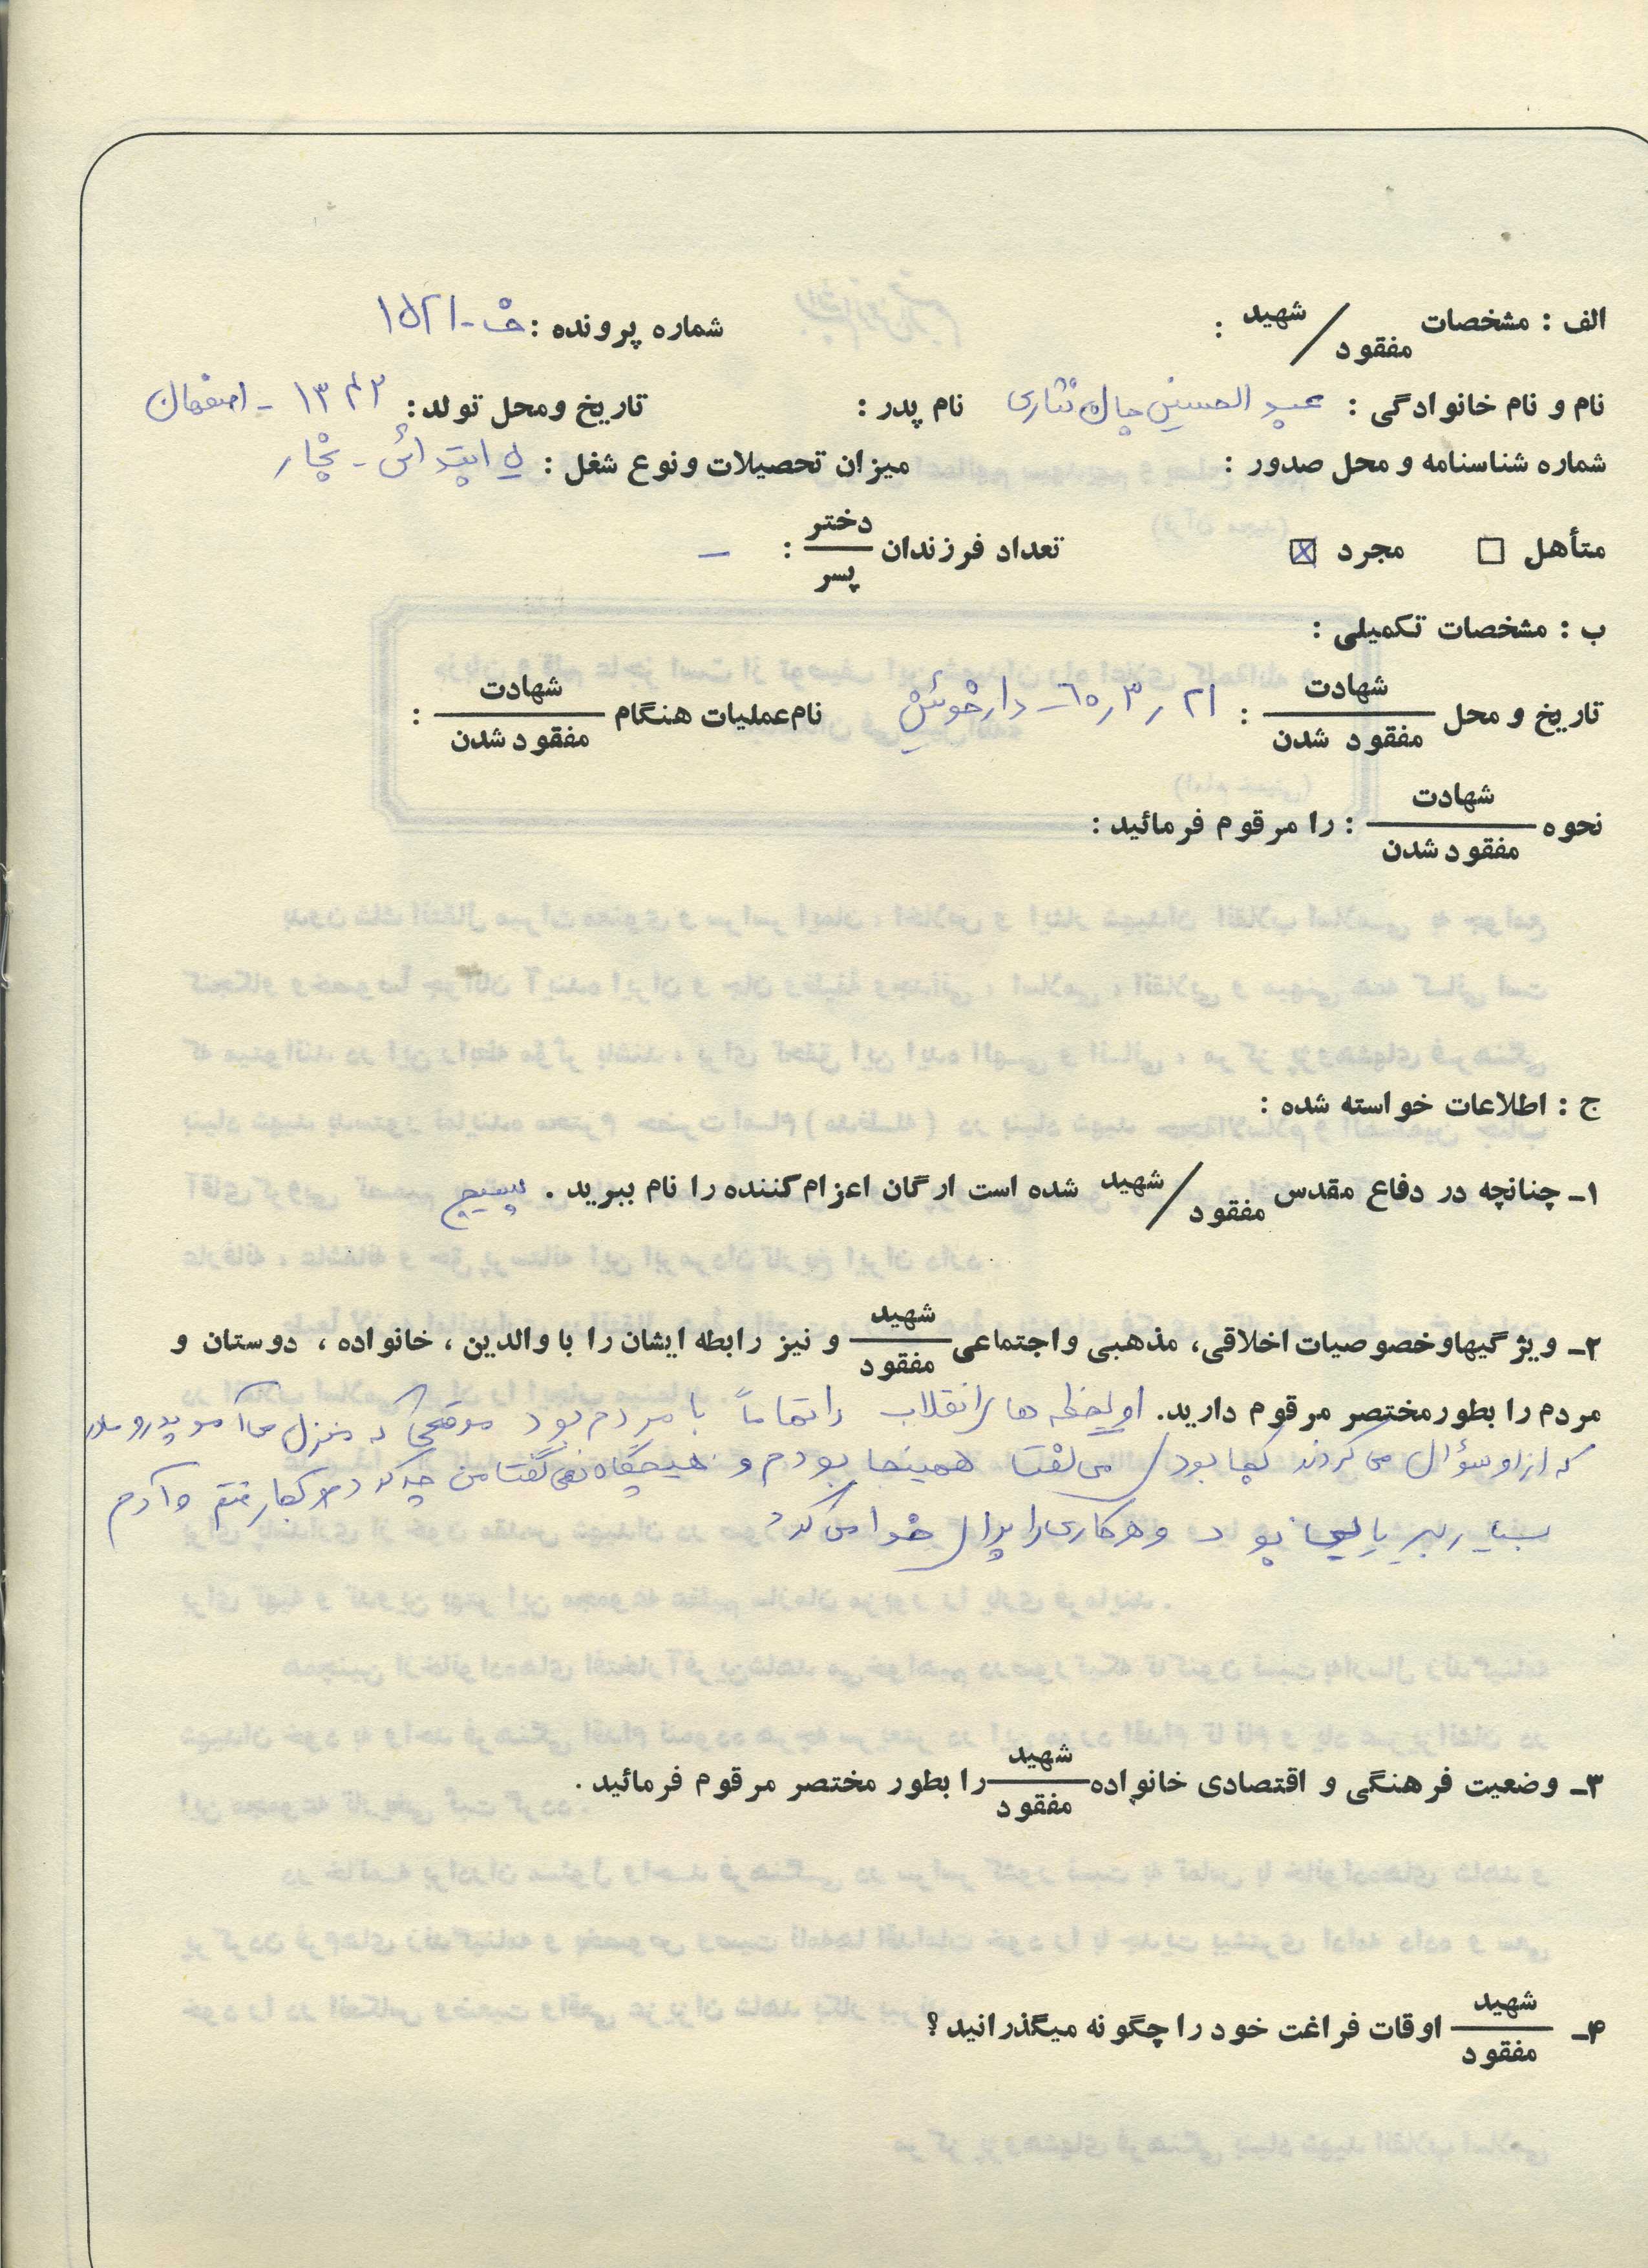 الف : مشخصات شهید / مفقود : شماره پرونده : ف-۱۵۲۱
نام و نام خانوادگی : عبد الحسین جان نثاری نام پدر : تاریخ و محل تولد : ۱۳۴۲ - اصفهان
شماره شناسنامه و محل صدور : میزان تحصیلات و نوع شغل : ۵ ابتدائی - نجار
متأهل ☐ مجرد ☒ تعداد فرزندان دختر / پسر : –
ب : مشخصات تکمیلی :
تاریخ و محل شهادت / مفقود شدن : ۲۱ ر ۳ ر ۶۰ - دارخوئین نام عملیات هنگام شهادت / مفقود شدن :
نحوه شهادت / مفقود شدن : را مرقوم فرمائید :
ج : اطلاعات خواسته شده :
۱ـ چنانچه در دفاع مقدس شهید / مفقود شده است ارگان اعزام کننده را نام ببرید . بسیج
۲ـ ویژگیها و خصوصیات اخلاقی، مذهبی و اجتماعی شهید / مفقود و نیز رابطه ایشان را با والدین ، خانواده ، دوستان و
مردم را بطور مختصر مرقوم دارید. او لحظه های انقلاب را تماماً با مردم بود موقعی که منزل می آمد پدر و مادر
که از او سؤال می کردند کجا بود می گفت همینجا بودم و هیچگاه نمی گفت من چه کردم کجا رفتم و آمدم
بسیار بود و هر کاری را برای خدا می کرد
۳ـ وضعیت فرهنگی و اقتصادی خانواده شهید / مفقود را بطور مختصر مرقوم فرمائید .
۴ـ شهید / مفقود اوقات فراغت خود را چگونه میگذرانید ؟